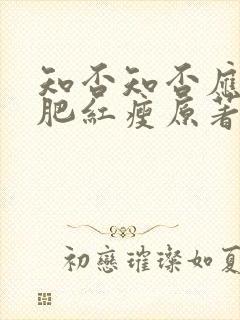 知否知否應
肥紅瘦原著
初戀璀璨如夏